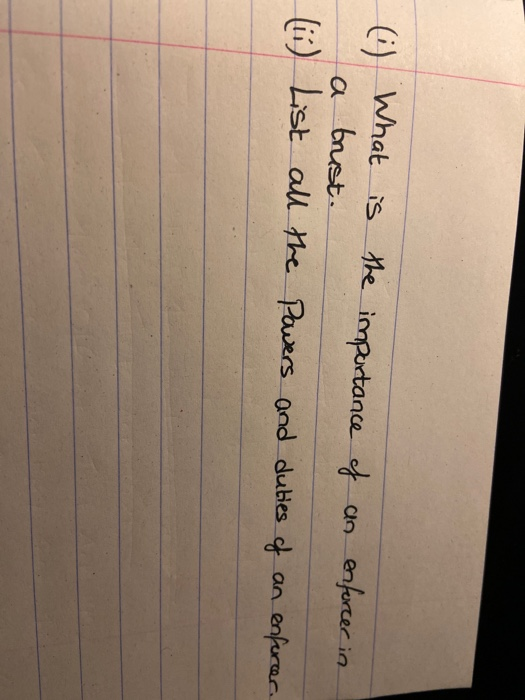 (i) What is the importance of an enforcer in
a trust.
(ii) List all the Powers and duties of an enforcer.